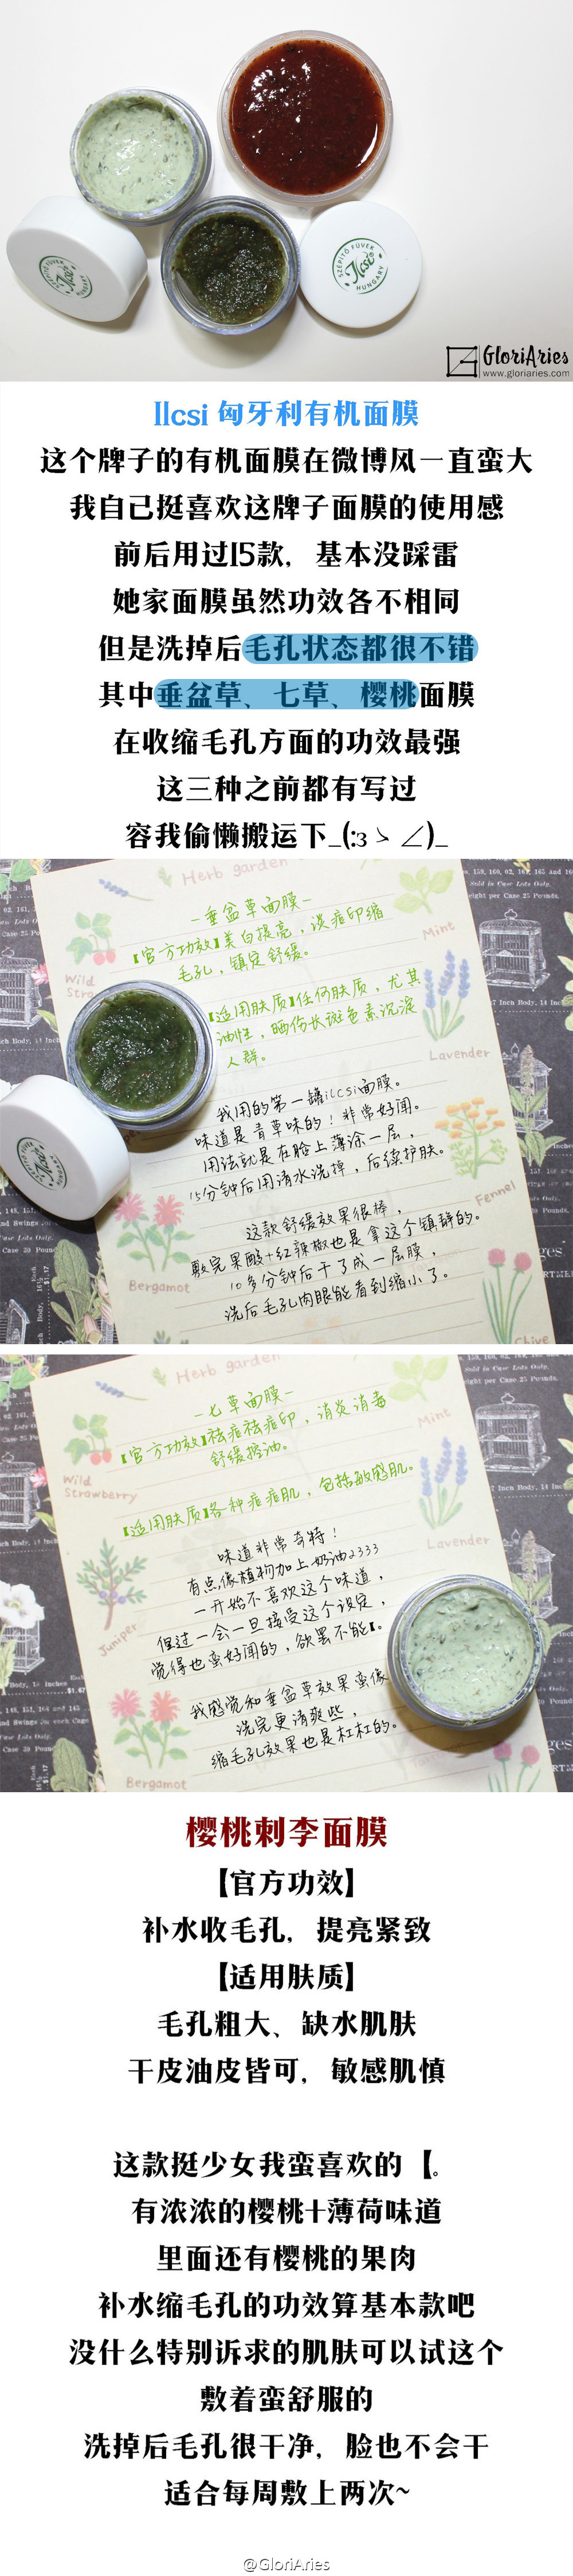 SZÉPÍTŐ FÜVEK
Ilcsi
HUNGARY
SZÉPÍTŐ FÜVEK
Ilcsi
HUNGARY
GloriAries
www.gloriaries.com
Ilcsi 匈牙利有机面膜
这个牌子的有机面膜在微博风一直蛮大
我自己挺喜欢这牌子面膜的使用感
前后用过15款，基本没踩雷
她家面膜虽然功效各不相同
但是洗掉后毛孔状态都很不错
其中垂盆草、七草、樱桃面膜
在收缩毛孔方面的功效最强
这三种之前都有写过
容我偷懒搬运下_(:з」∠)_
Herb garden
-垂盆草面膜-
【官方功效】美白提亮，淡痘印缩
毛孔，镇定舒缓。
Mint
Wild
【适用肤质】任何肤质，尤其
油性，晒伤长斑色素沉淀
人群。
Lavender
我用的第一罐ilcsi面膜。
味道是青草味的！非常好闻。
用法就是在脸上薄涂一层，
15分钟后用清水洗掉，后续护肤。
Fennel
这款舒缓效果很棒，
敷完果酸+红辣椒也是拿这个镇静的。
10多分钟后干了成一层膜，
洗后毛孔肉眼能看到缩小了。
Bergamot
Chive
Herb garden
-七草面膜-
【官方功效】祛痘祛痘印，消炎消毒
舒缓控油。
Mint
Wild
Strawberry
【适用肤质】各种痘痘肌，包括敏感肌。
Lavender
味道非常奇特！
有点像植物加上奶油2333
一开始不喜欢这个味道，
但过一会一旦接受这个设定，
觉得也蛮好闻的，欲罢不能【。
Juniper
我感觉和垂盆草效果蛮像
洗完更清爽些，
缩毛孔效果也是杠杠的。
Bergamot
樱桃刺李面膜
【官方功效】
补水收毛孔，提亮紧致
【适用肤质】
毛孔粗大、缺水肌肤
干皮油皮皆可，敏感肌慎
这款挺少女我蛮喜欢的【。
有浓浓的樱桃+薄荷味道
里面还有樱桃的果肉
补水缩毛孔的功效算基本款吧
没什么特别诉求的肌肤可以试这个
敷着蛮舒服的
洗掉后毛孔很干净，脸也不会干
适合每周敷上两次~
@GloriAries